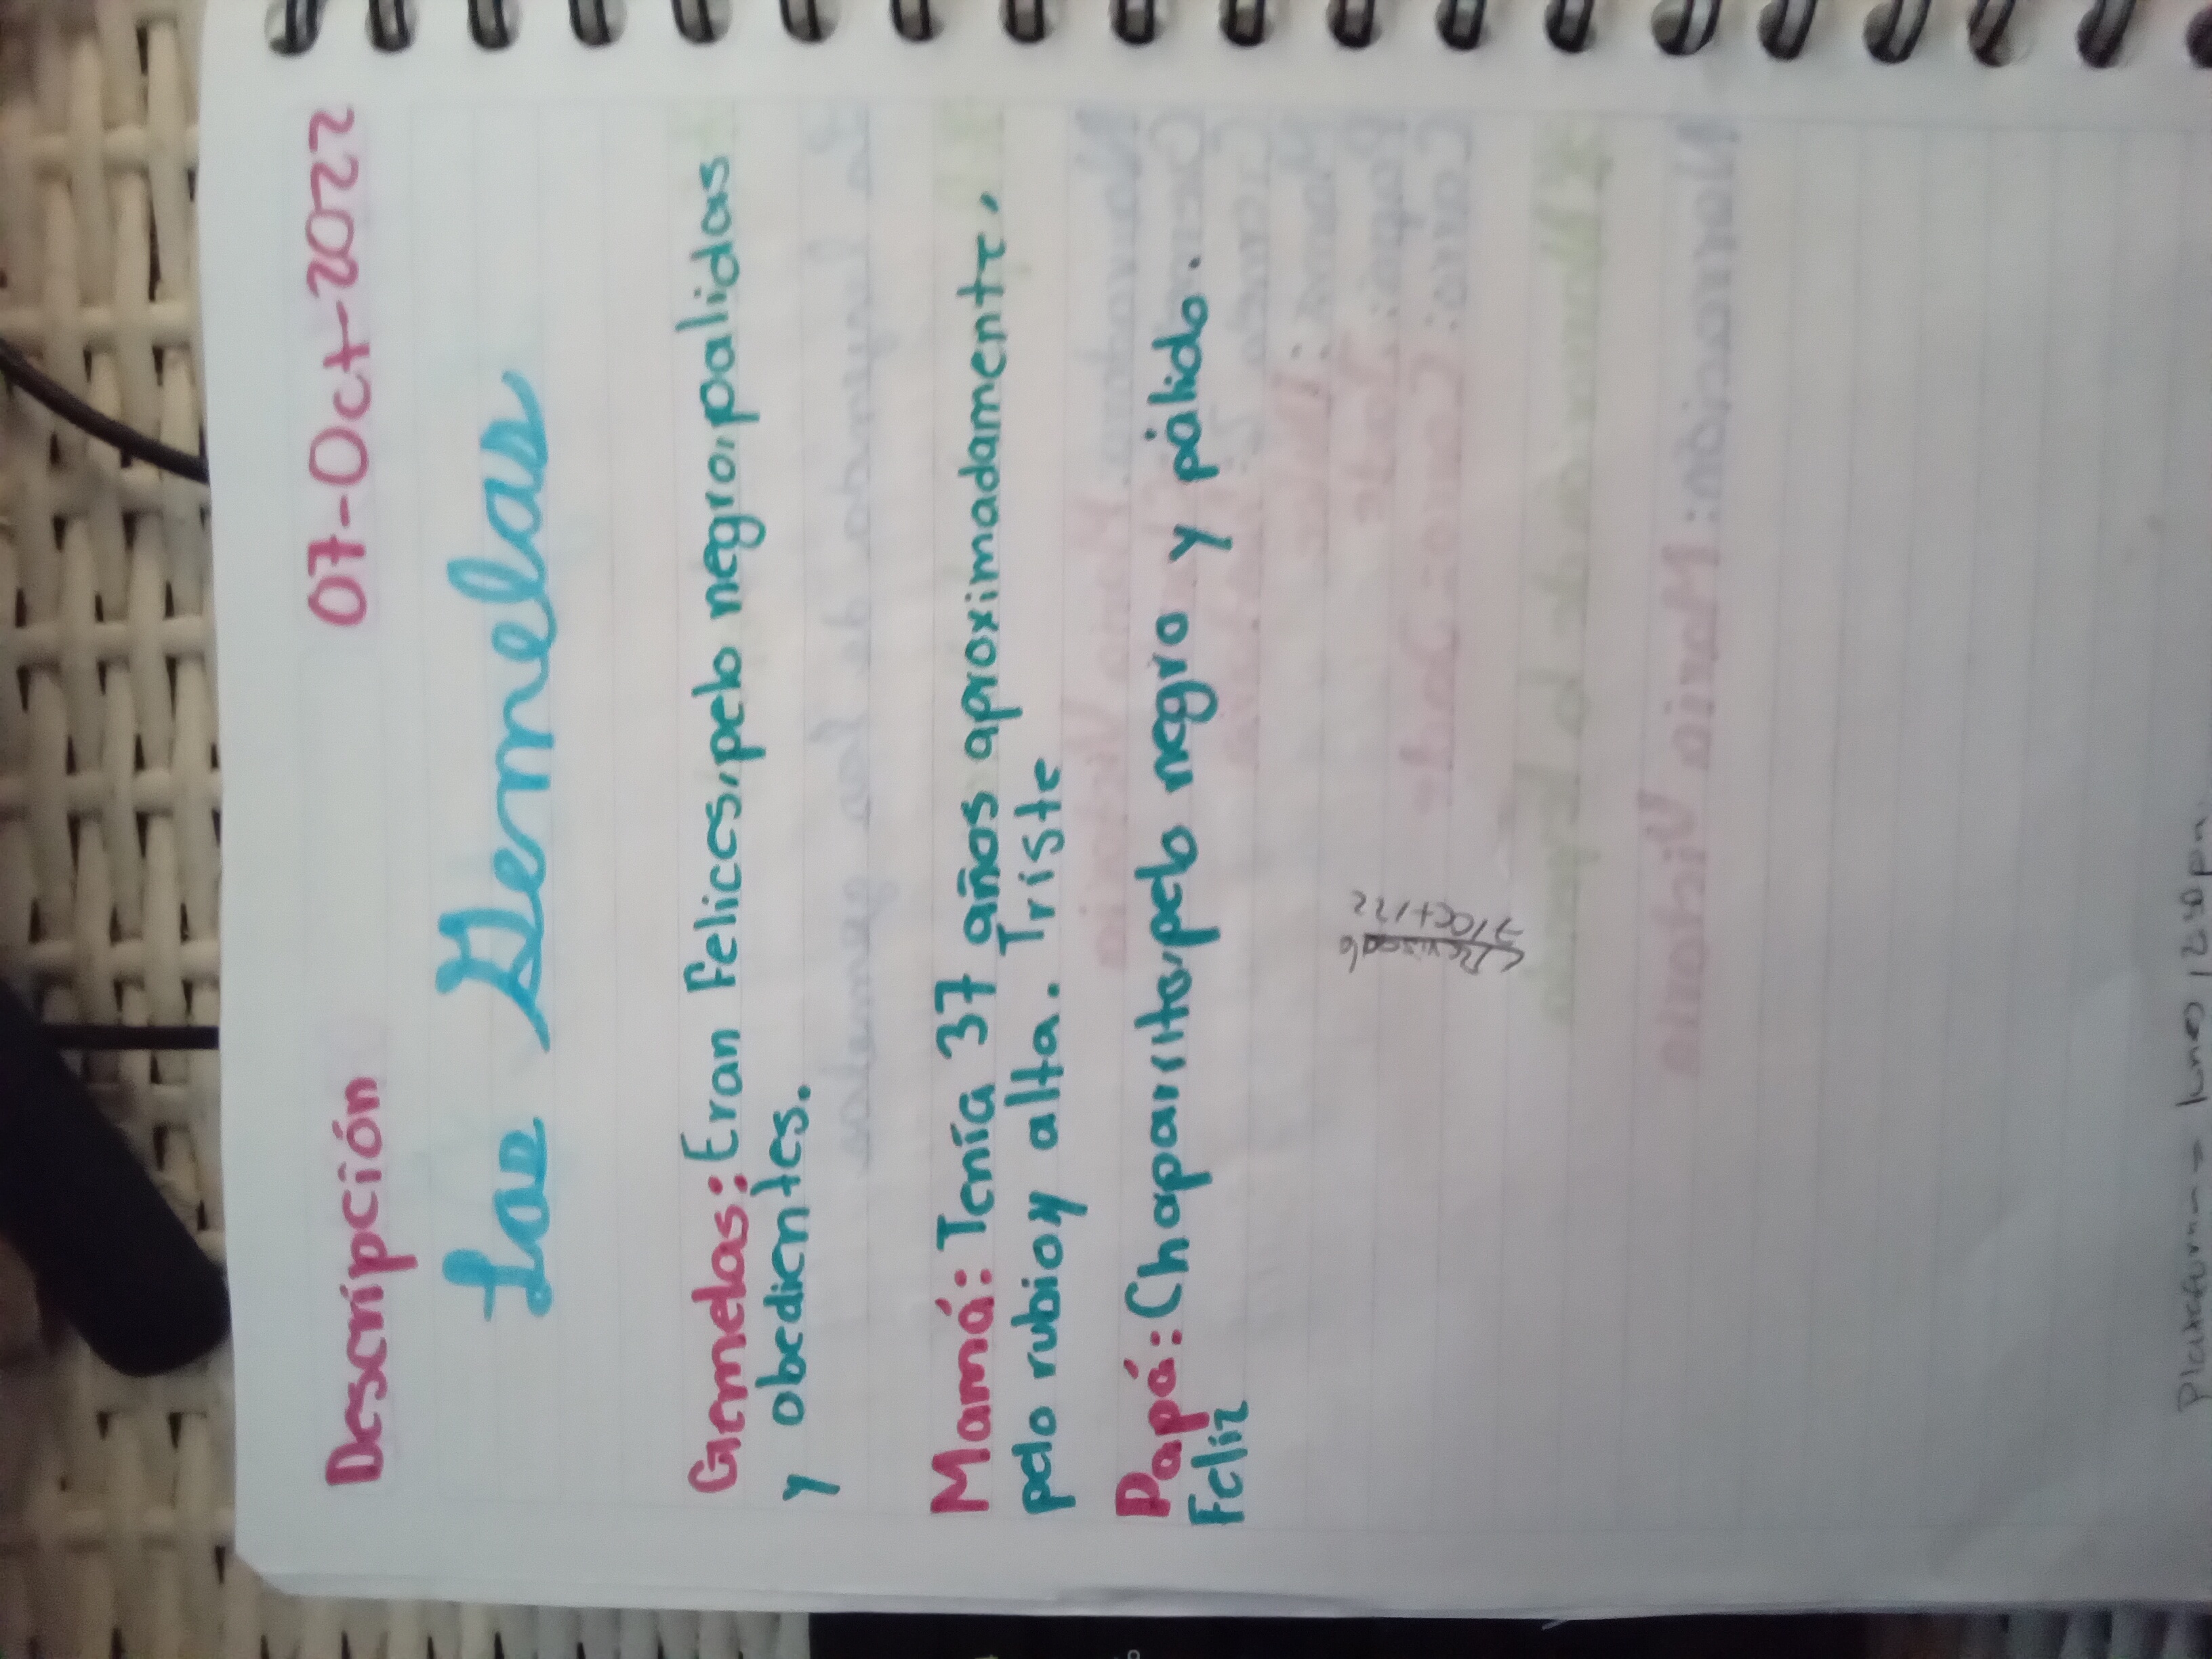 Descripción 07-Oct-2022
Las Gemelas
Gemelas: Eran felices, pelo negro, palidas
y obedientes.
Mamá: Tenía 37 años aproximadamente,
pelo rubio y alta. Triste
Papá: Chaparrito, pelo negro y pálido.
Feliz
Revisado
7/Oct/22